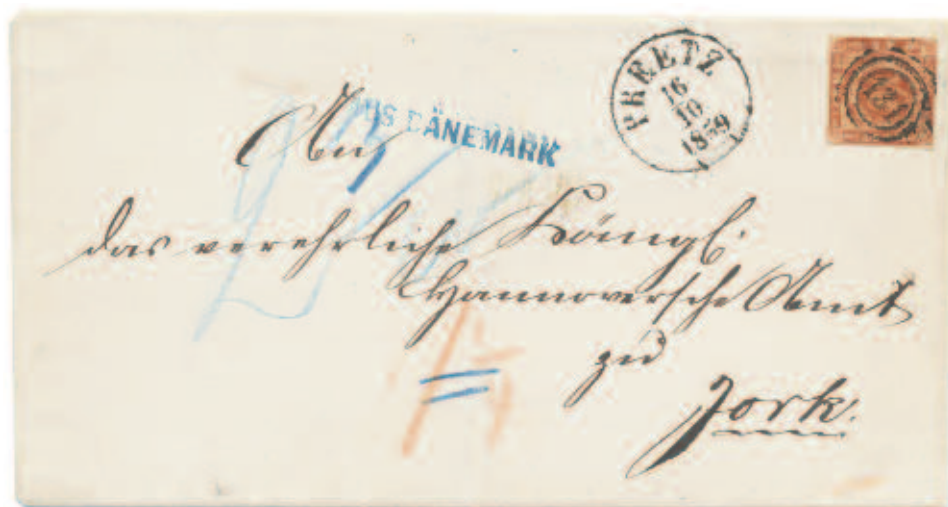 PREETZ
16
10
1859
AUS DÄNEMARK
An
das verehrliche Königl.
Hannoversche Amt
zu
Jork.